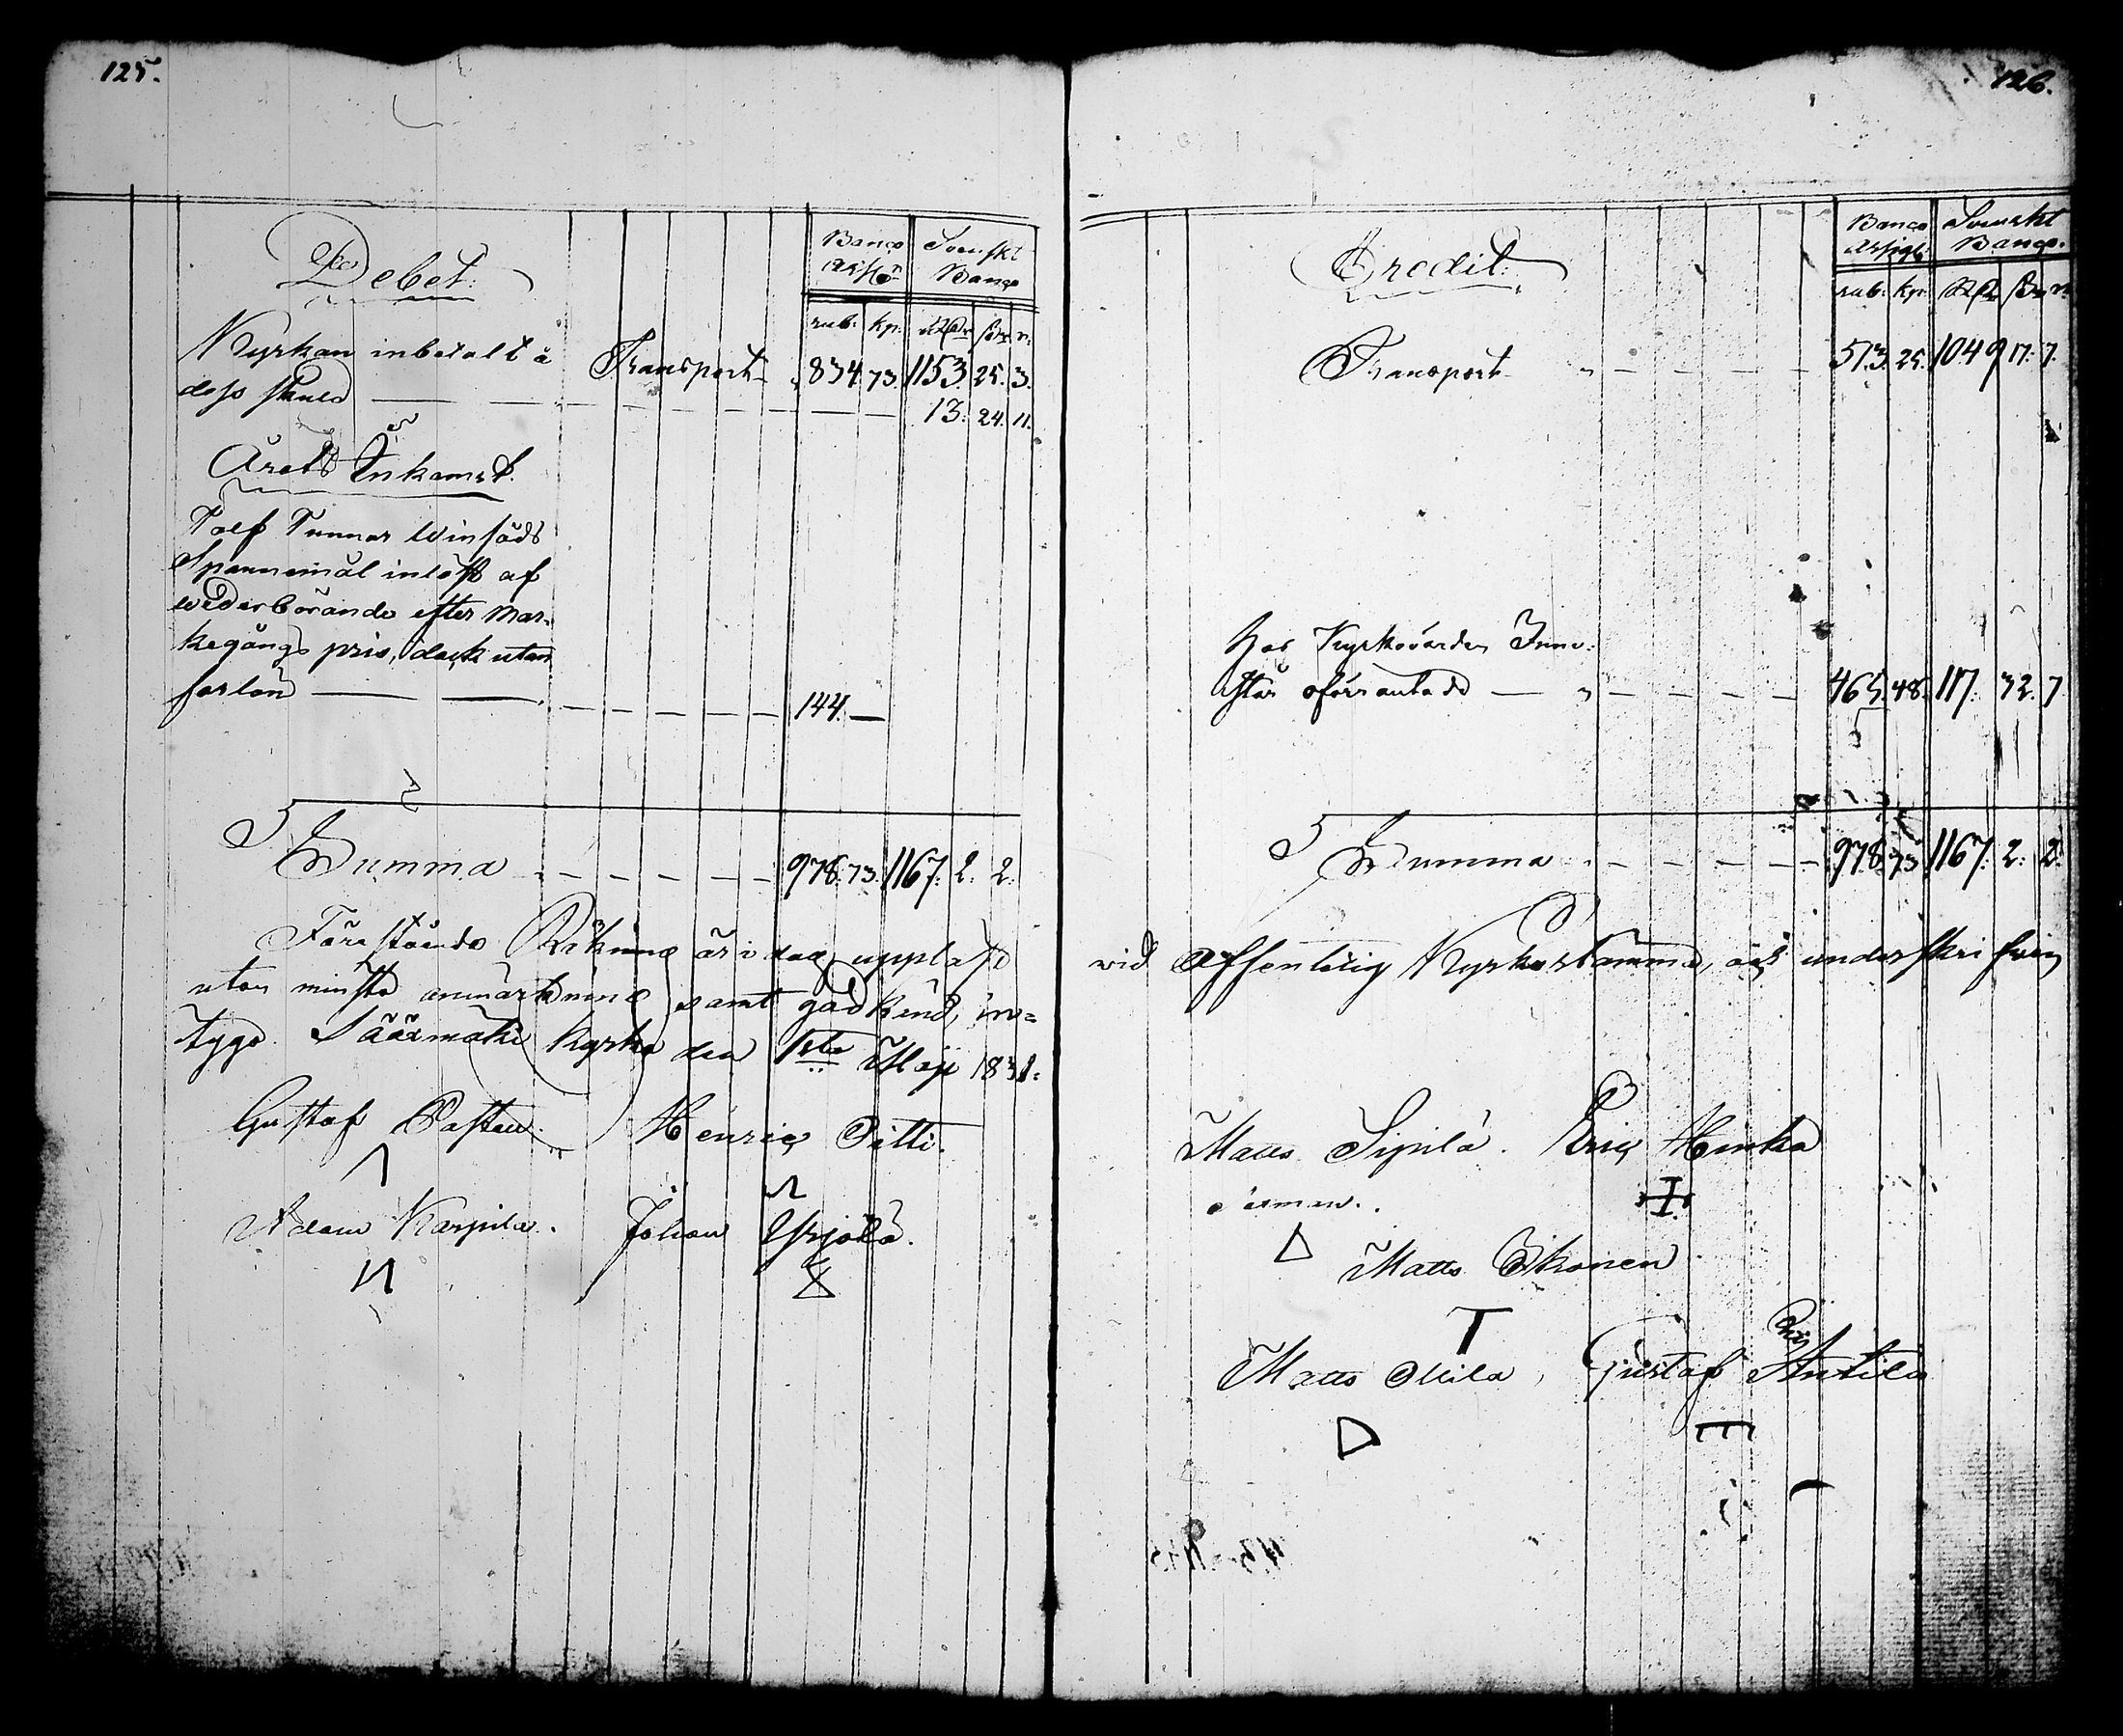 125.
Debet:
Banco Svenskt
Banco
rub: kp:
Kyrkan inbetalt å Transport 834. 73. 1153. 25. 3.
dess skuld 13: 24. 11.
Årets Inkomst.
Tolf Tunnor Winsäds
Spannemål inlöst af
wederbörande efter Mar-
kegångs pris, dock utan
forlön 144. —
Summa 978. 73. 1167: 2. 2:
Förestående Räkning är i dag uppläst
utan minsta anmärkning samt godkänd, in=
tyga. Säärmäki Kyrka den 1sta Maji 1831:
Gustaf Henric Pitti.
Adam Karpila. Johan Yrjölä.
126.
Credit:
Banco Svenskt
Assigt: Banco.
rub: kp:
Transport 513. 25. 1049 17: 7.
Hos Kyrkovärden Inne-
står oförräntade 465. 48. 117. 32. 7
Summa 978. 73 1167: 2: 2:
wid offentelig Kyrkostämma, och underskrifwin
Matts Sipilä. Eric Heinka
Matts Ikonen
Matts Ollila, Gustaf Antila